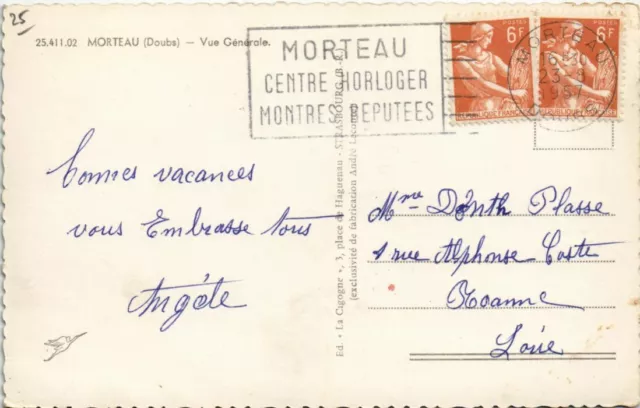 25
25.411.02 MORTEAU (Doubs) — Vue Générale.
MORTEAU
CENTRE HORLOGER
MONTRES REPUTEES
POSTES
6F
REPUBLIQUE FRANÇAISE
POSTES
6F
REPUBLIQUE FRANÇAISE
MORTEAU
1957
Bonnes vacances
vous Embrasse tous
Angèle
Ed. « La Cigogne », 3, place de Haguenau - STRASBOURG (B.-R.)
(exclusivité de fabrication André Leconte)
Mme Plasse
1 rue Alphonse Coste
Roanne
Loire